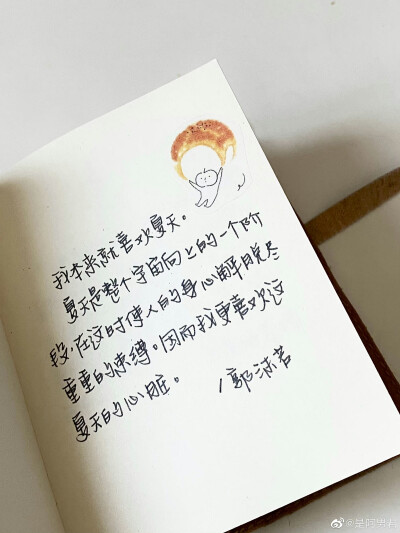 我本来就喜欢夏天。
夏天是整个宇宙向上的一个阶
段，在这时使人的身心解脱尽
重重的束缚。因而我更喜欢这
夏天的心脏。
/郭沫若